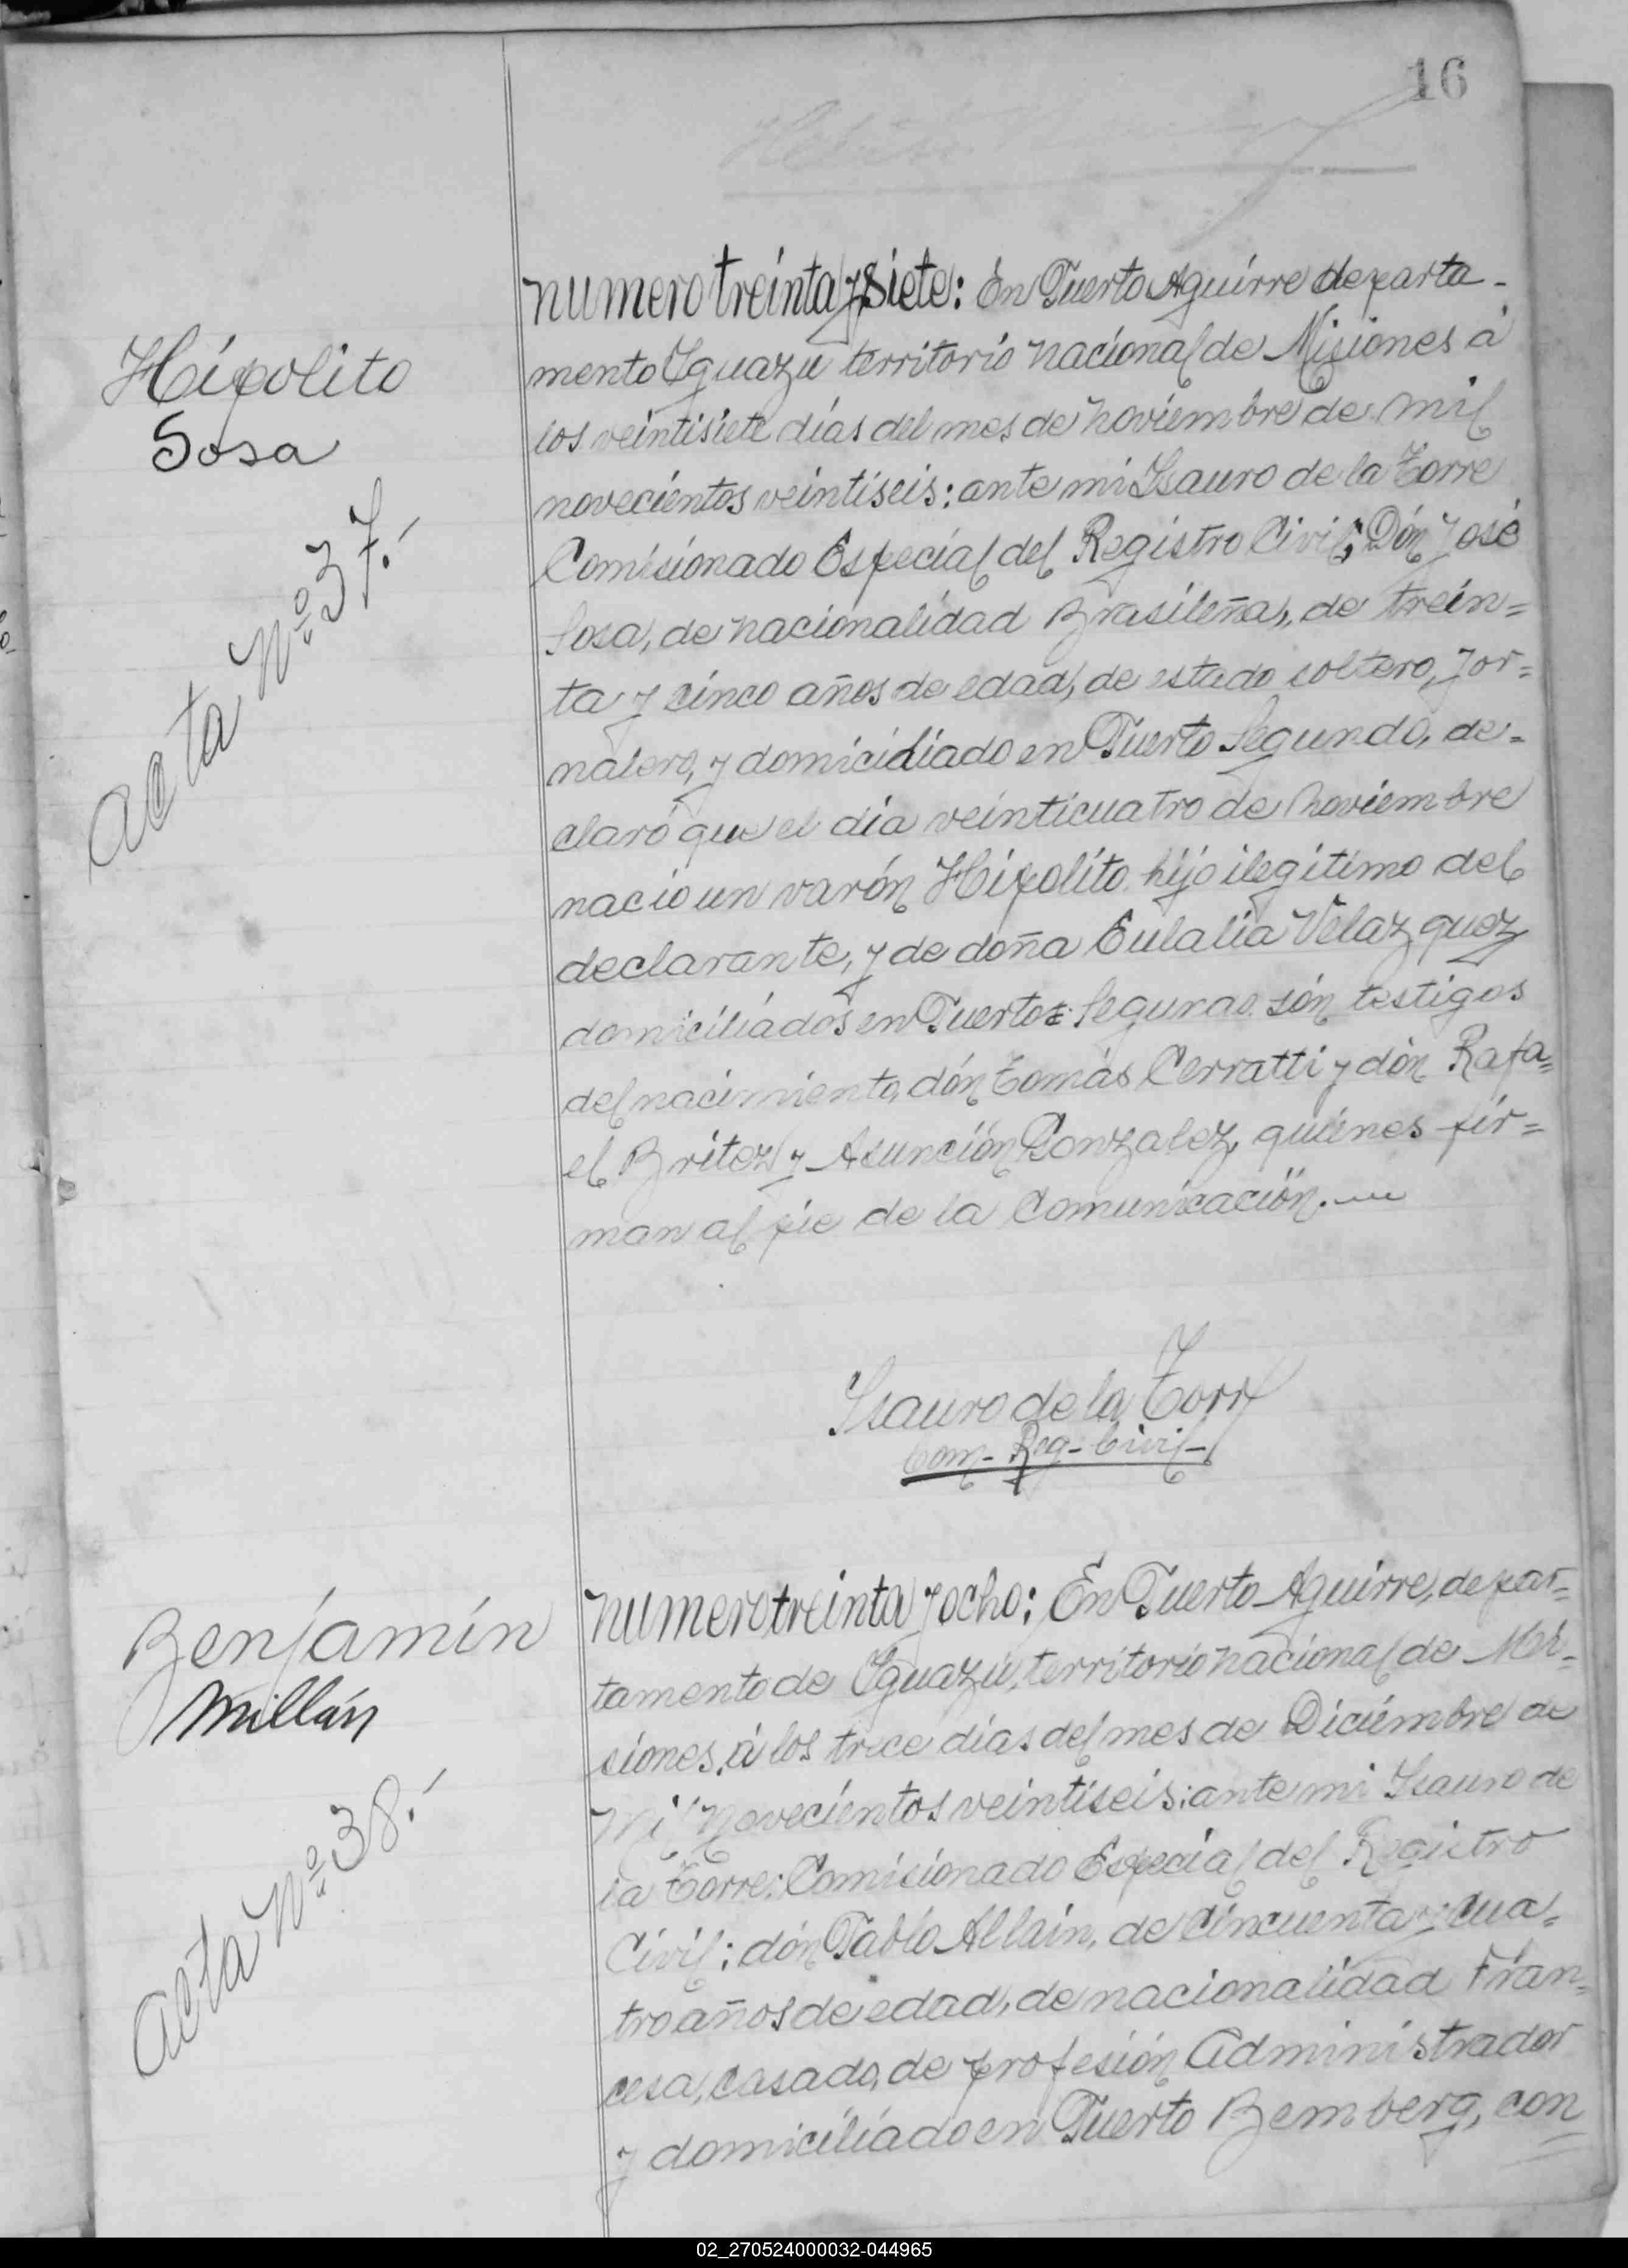 16
Hipolito
Sosa
Acta Nº 37.-
numero treinta y siete: En Puerto Aguirre departa-
mento Yguazu territorio nacional de Misiones á
los veintisiete días del mes de noviembre de mil
novecientos veintiseis: ante mi Isauro de la Torre
Comisionado Especial del Registro Civil; Dón José
Sosa, de nacionalidad Brasileña, de trein=
ta y cinco años de edad, de estado soltero, jor=
nalero, y domicidiado en Puerto Segundo, de=
claró que el día veinticuatro de noviembre
nacio un varón Hipolito hijo ilegitimo del
declarante, y de doña Eulalia Velazquez
domiciliados en Puerto Segundo són testigos
del nacimiento, dón Tomás Cerratti y dón Rafa=
el Britez y Asunción Gonzalez, quiénes fir=
man al pie de la Comunicación.
Isauro de la Torre
Com- Reg- Civil-
Benjamín
Millán
Acta Nº 38.-
numero treinta y ocho: En Puerto Aguirre, depar=
tamento de Yguazu, territorio nacional de Mi-
siones, á los trece días del mes de Diciembre de
Mil Novecientos veintiseis: ante mi Isauro de
la Torre: Comisionado Especial del Registro
Civil; dón Pablo Allain, de cincuenta y cua=
tro años de edad, de nacionalidad Fran=
cesa, casado, de profesión Administrador
y domiciliado en Puerto Bemberg, con
02_270524000032-044965